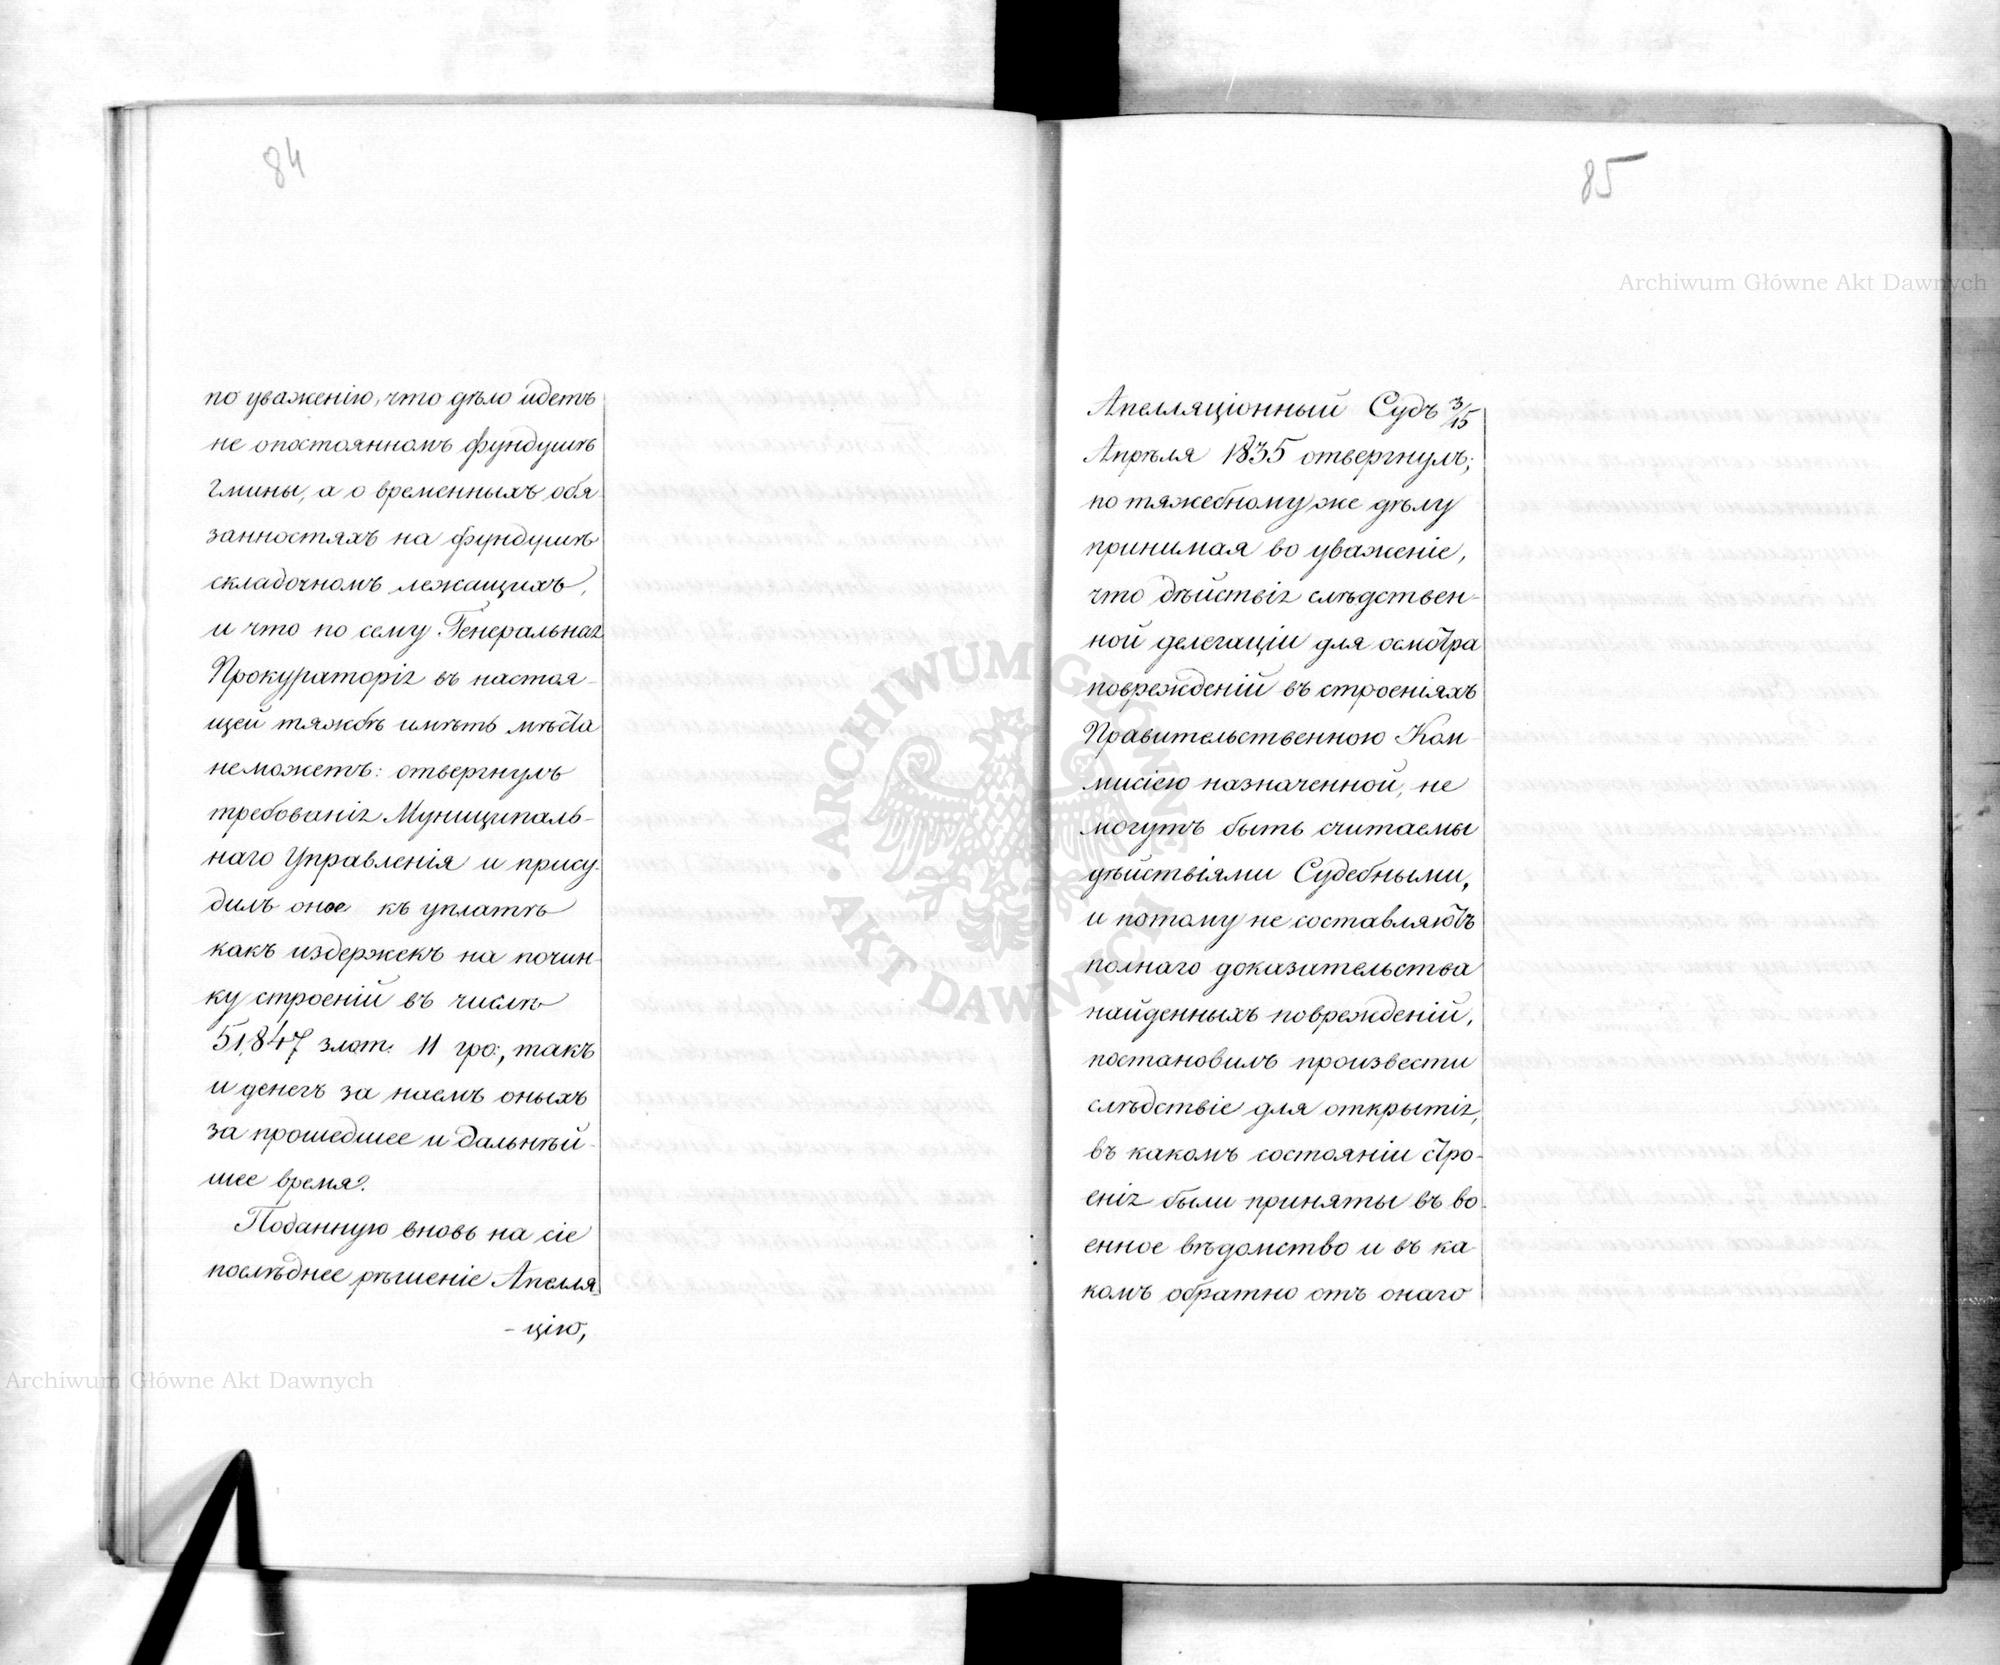 84
по уваженію, что дѣло идетъ
не опостоянномъ фундушѣ
Гмины, а о временныхъ обя-
занностяхъ на фундушѣ
складочномъ лежащихъ,
и что по сему Генеральная
Прокураторія въ настоя-
щей тяжбѣ имѣть мѣста
неможетъ: отвергнулъ
требованія Муниципаль-
наго Управленія и прису-
дилъ оное къ уплатѣ
какъ издержекъ на почин-
ку строеній въ числѣ
51,847 злот. 11 гро:, такъ
и денегъ за наемъ оныхъ
за прошедшее и дальнѣй-
шее время.
Поданную вновь на сіе
послѣднее рѣшеніе Апелля-
- цію,
85
Апелляціонный Судъ 3/15
Апрѣля 1835 отвергнулъ;
по тяжебному же дѣлу
принимая во уваженіе,
что дѣйствія слѣдствен-
ной делегаціи для осмотра
поврежденій въ строеніяхъ
Правительственною Ком-
мисіею назначенной, не
могутъ быть считаемы
дѣйствіями Судебными,
и потому не составляютъ
полнаго доказательства
найденныхъ поврежденій,
постановилъ произвести
слѣдствіе для открытія,
въ какомъ состояніи стро-
енія были приняты въ во-
енное вѣдомство и въ ка-
комъ обратно отъ онаго
Archiwum Główne Akt Dawnych
Archiwum Główne Akt Dawnych
ARCHIWUM GŁÓWNE
AKT DAWNYCH